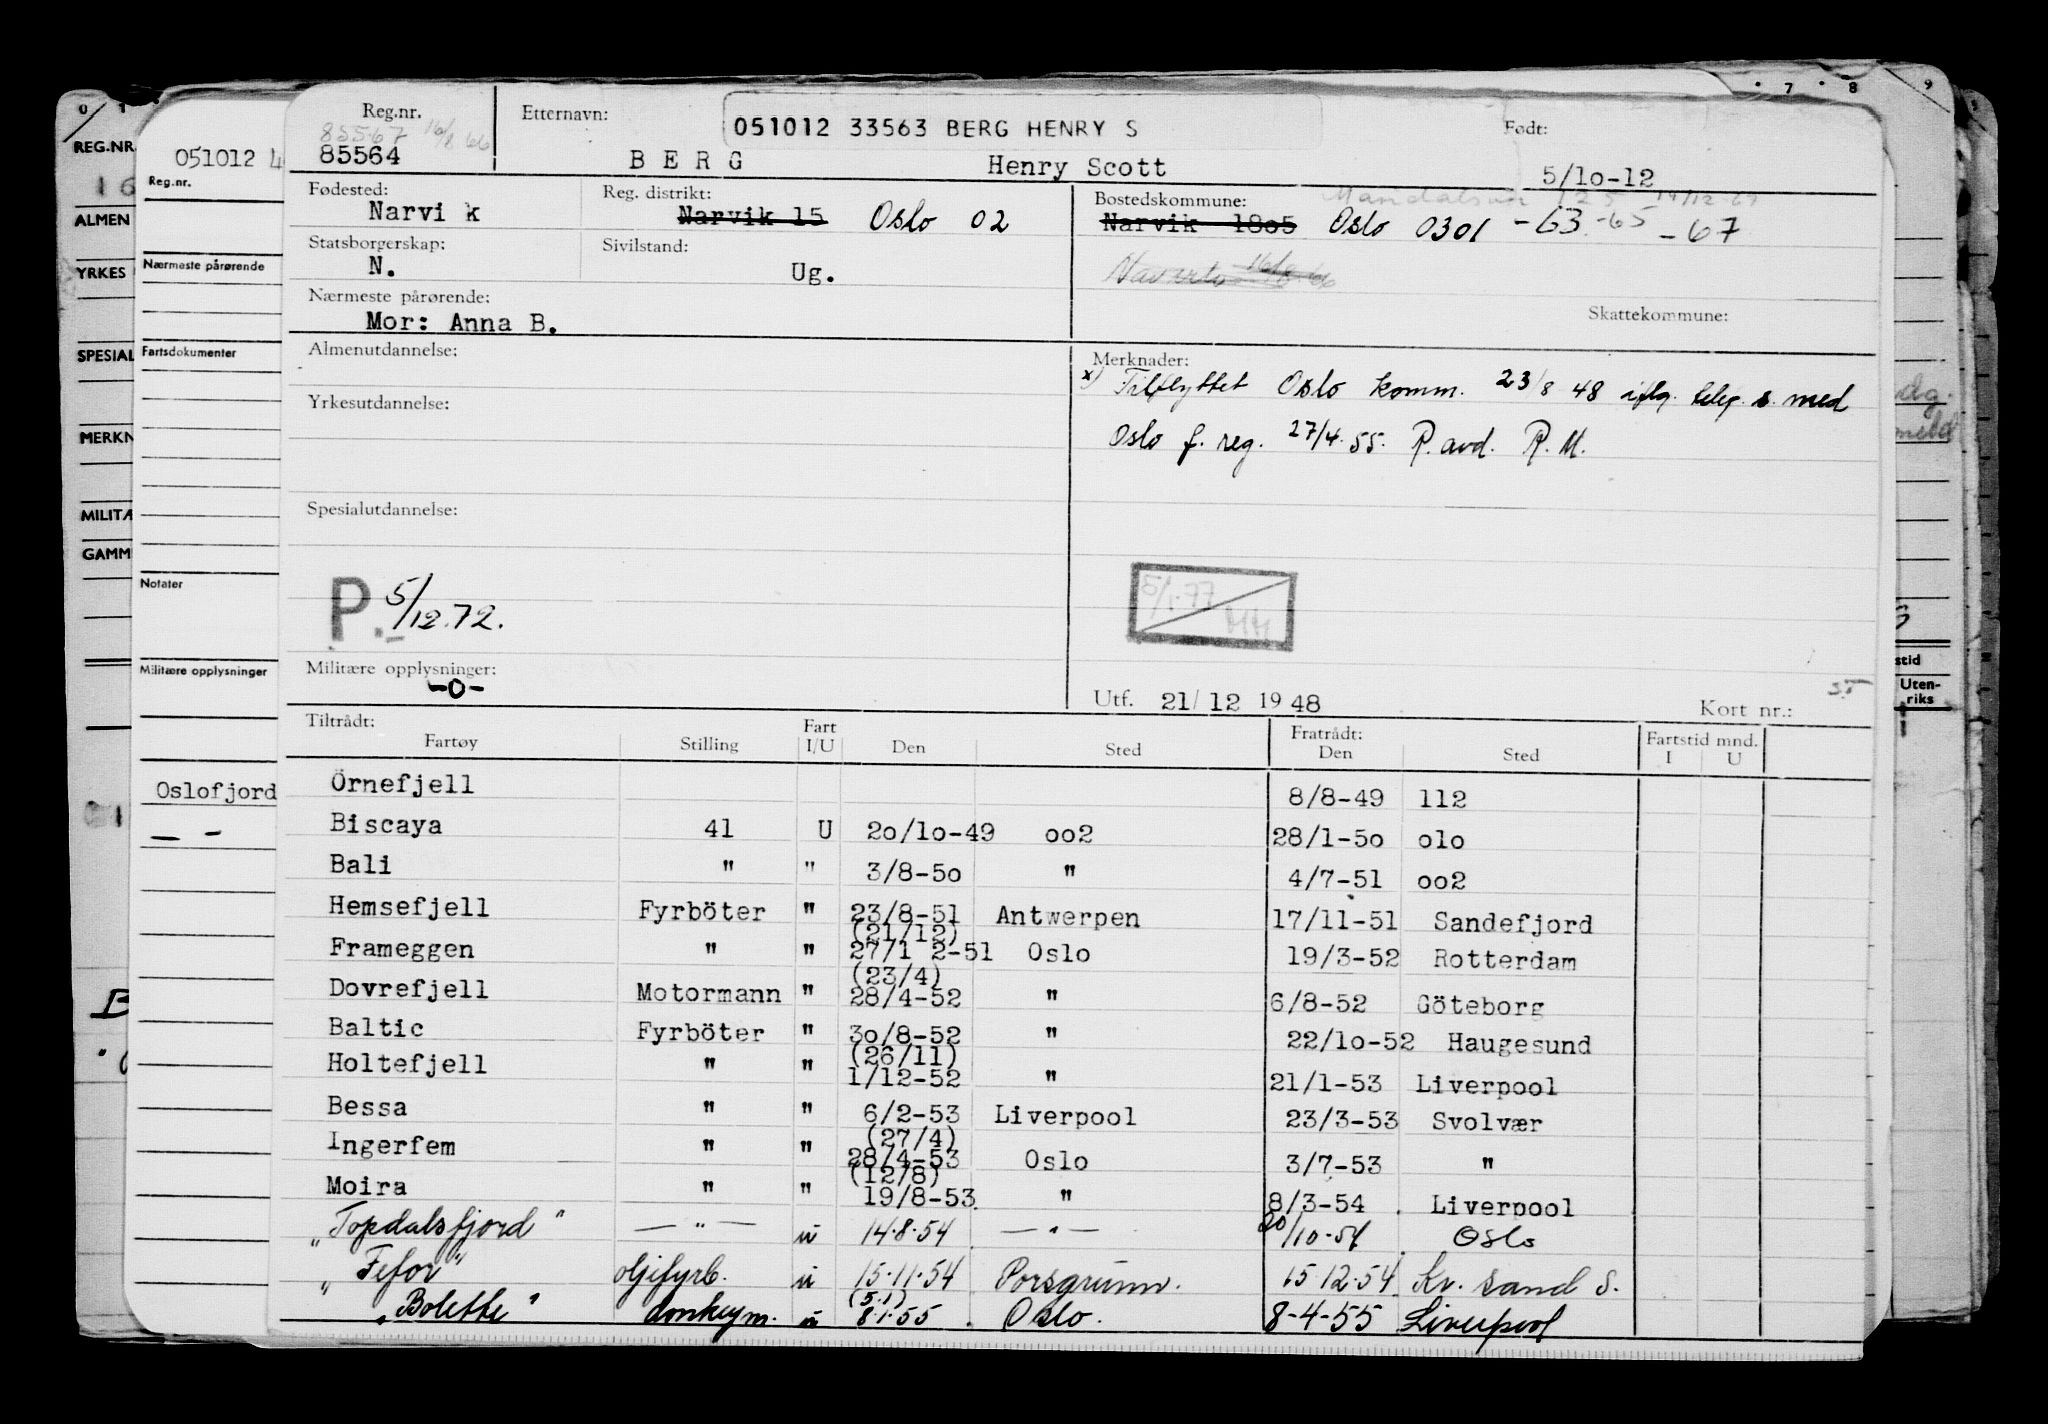 Reg.nr. Etternavn: 051012 33563 BERG HENRY S Født:
85567 16/8 66
85564 BERG Henry Scott 5/10-12
Fødested: Narvik Reg. distrikt: Narvik 15 Oslo 02 Bostedskommune: Narvik 1805 Oslo 0301 -63 -65 -67
Statsborgerskap: N. Sivilstand: Ug.
Nærmeste pårørende: Skattekommune:
Mor: Anna B.
Almenutdannelse: Merknader:
x) Tilflyttet Oslo komm. 23/8 48 iflg. telef. s. med
Yrkesutdannelse:
Oslo f. reg. 27/4.55. P.avd. R.M.
Spesialutdannelse:
P. 5/12.72. 5/1.77
Militære opplysninger:
-0-
Utf. 21/12 1948 Kort nr.:
Tiltrådt: Fart Fratrådt: Fartstid mnd.
Fartøy Stilling I/U Den Sted Den Sted I U
Örnefjell 8/8-49 112
Biscaya 41 U 2o/1o-49 oo2 28/1-5o olo
Bali " " 3/8-5o " 4/7-51 oo2
Hemsefjell Fyrböter " 23/8-51 Antwerpen 17/11-51 Sandefjord
(21/12)
Frameggen " " 27/1 2-51 Oslo 19/3-52 Rotterdam
(23/4)
Dovrefjell Motormann " 28/4-52 " 6/8-52 Göteborg
Baltic Fyrböter " 3o/8-52 " 22/1o-52 Haugesund
(26/11)
Holtefjell " " 1/12-52 " 21/1-53 Liverpool
Bessa " " 6/2-53 Liverpool 23/3-53 Svolvær
(27/4)
Ingerfem " " 28/4-53 Oslo 3/7-53 "
(12/8)
Moira " " 19/8-53 " 8/3-54 Liverpool
"Topdalsfjord" — " — u 14.8.54 — " — 20/10.54 Oslo
"Fefor" oljefyrb. u 15.11.54 Porsgrunn. 15 12.54 Kr. sand S.
(5.1)
"Bolette" donkeym. u 8.1.55 Oslo. 8-4-55 Liverpool
051012 4
Reg.nr.
Nærmeste pårørende
Fartsdokumenter
Notater
Militære opplysninger
Oslofjord
— -
0 1
REG.NR.
16
ALMEN
YRKES
SPESIAL
MERKN
MILITÆ
GAMM
7 8 9
stid
Uten-
riks